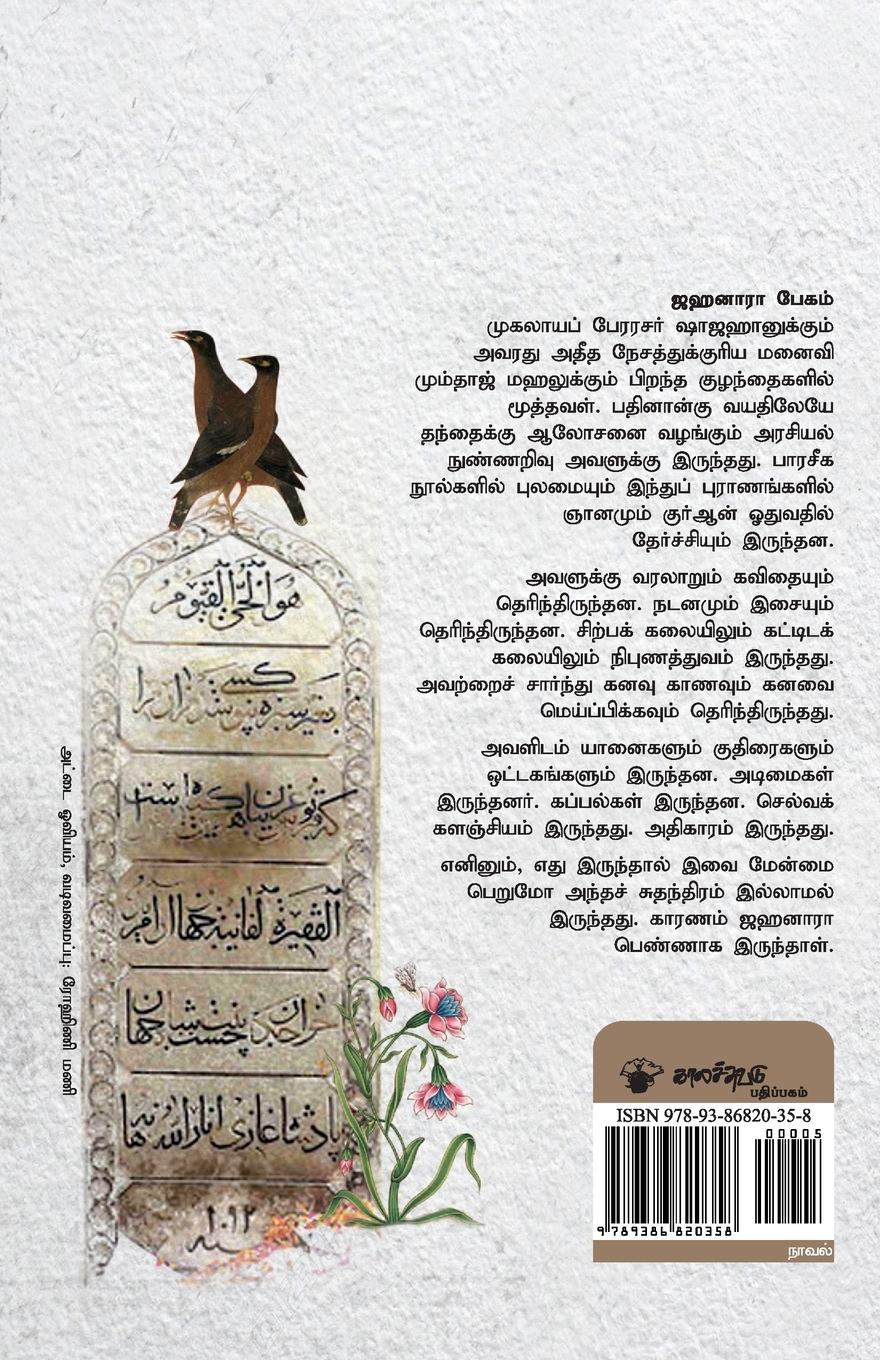 ஜஹனாரா பேகம்
முகலாயப் பேரரசர் ஷாஜஹானுக்கும்
அவரது அதீத நேசத்துக்குரிய மனைவி
மும்தாஜ் மஹலுக்கும் பிறந்த குழந்தைகளில்
மூத்தவள். பதினான்கு வயதிலேயே
தந்தைக்கு ஆலோசனை வழங்கும் அரசியல்
நுண்ணறிவு அவளுக்கு இருந்தது. பாரசீக
நூல்களில் புலமையும் இந்துப் புராணங்களில்
ஞானமும் குர்ஆன் ஓதுவதில்
தேர்ச்சியும் இருந்தன.
அவளுக்கு வரலாறும் கவிதையும்
தெரிந்திருந்தன. நடனமும் இசையும்
தெரிந்திருந்தன. சிற்பக் கலையிலும் கட்டிடக்
கலையிலும் நிபுணத்துவம் இருந்தது.
அவற்றைச் சார்ந்து கனவு காணவும் கனவை
மெய்ப்பிக்கவும் தெரிந்திருந்தது.
அவளிடம் யானைகளும் குதிரைகளும்
ஒட்டகங்களும் இருந்தன. அடிமைகள்
இருந்தனர். கப்பல்கள் இருந்தன. செல்வக்
களஞ்சியம் இருந்தது. அதிகாரம் இருந்தது.
எனினும், எது இருந்தால் இவை மேன்மை
பெறுமோ அந்தச் சுதந்திரம் இல்லாமல்
இருந்தது. காரணம் ஜஹனாரா
பெண்ணாக இருந்தாள்.
هو الحي القيوم
بغير سبزه نپوشد مزار مرا
الفقيرة الفانية جهان آرا
پادشاه غازی انار الله برهانه
۱۰۹۲
سنه
அட்டை ஓவியம், வடிவமைப்பு: ரோஹிணி மணி
காலச்சுவடு
பதிப்பகம்
ISBN 978-93-86820-35-8
00005
9 789386 820358
நாவல்